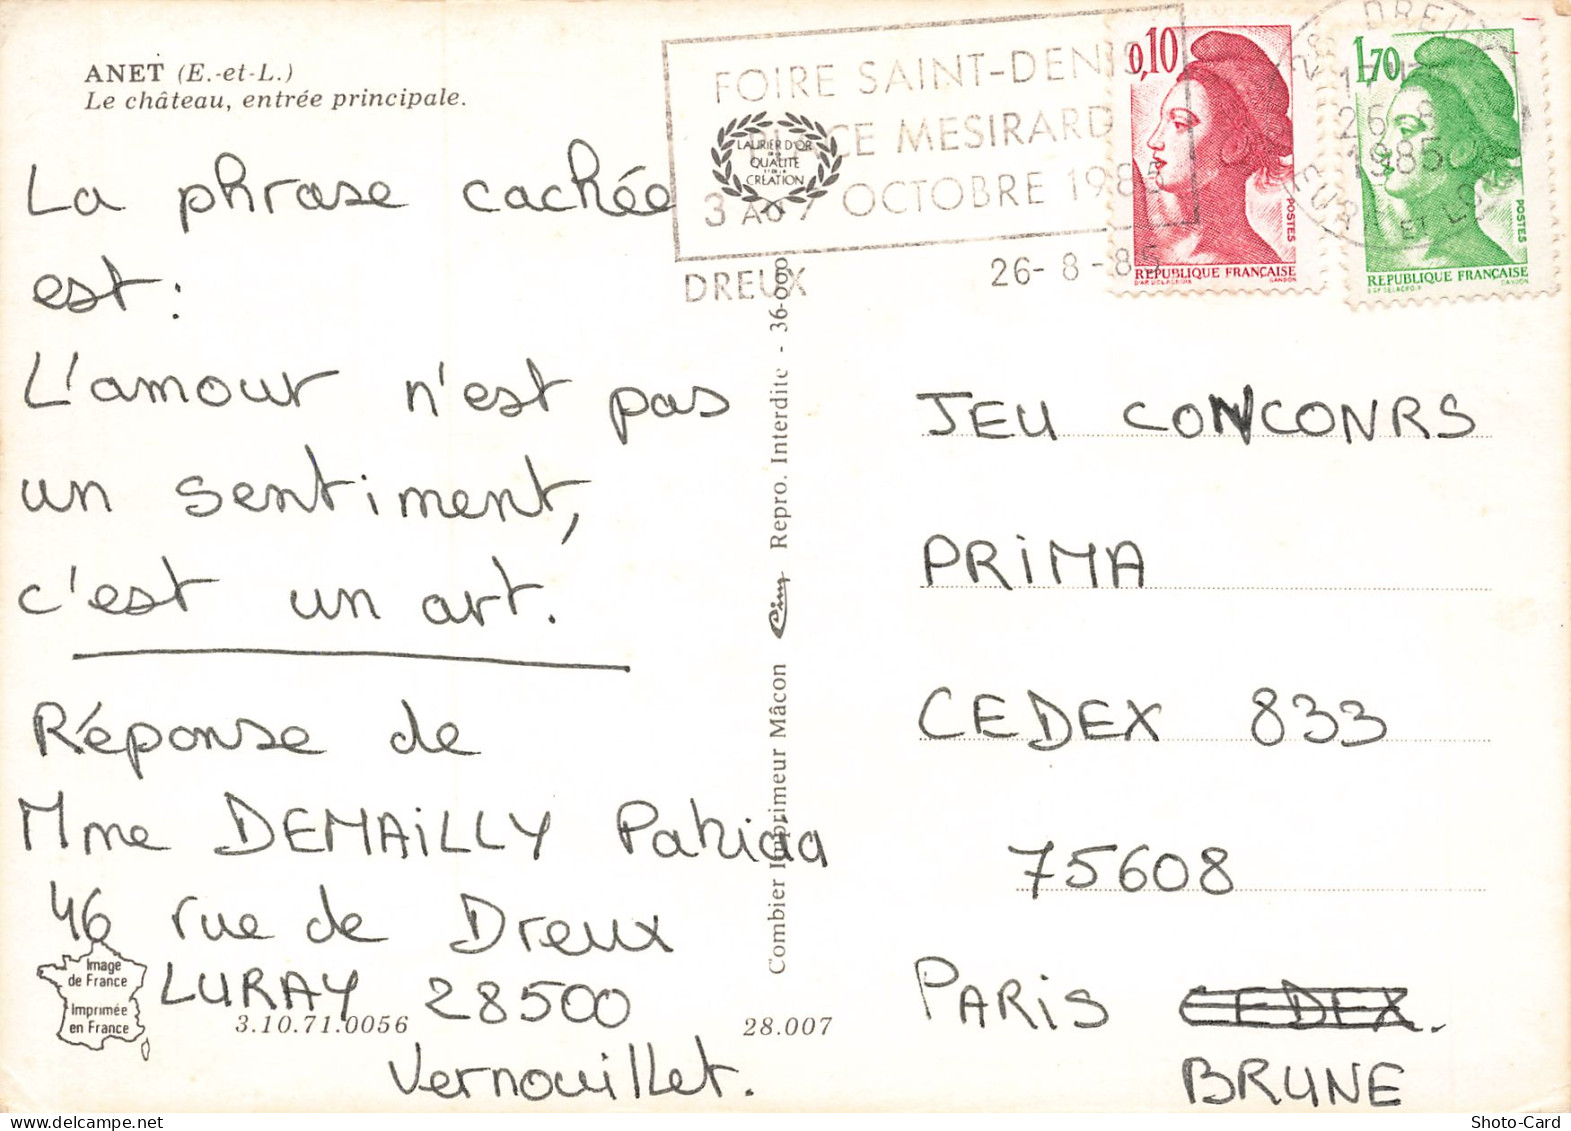 ANET (E.-et-L.)
Le château, entrée principale.
La phrase cachée
est :
L'amour n'est pas
un sentiment,
c'est un art.
Réponse de
Mme DEMAILLY Patricia
46 rue de Dreux
LURAY 28500
Vernouillet.
Image
de France
Imprimée
en France
3.10.71.0056
28.007
Combier Imprimeur Mâcon Cim Repro. Interdite - 36-000
FOIRE SAINT-DENIS
PLACE MESIRARD
3 AU 7 OCTOBRE 1985
DREUX
26-8-85
LAURIER D'OR
DE LA
QUALITÉ
ET DE LA
CRÉATION
0,10
POSTES
RÉPUBLIQUE FRANÇAISE
D'AP. DELACROIX GANDON
1,70
POSTES
RÉPUBLIQUE FRANÇAISE
D'AP. DELACROIX GANDON
28 DREUX
26-8
1985
EURE ET LOIR
JEU CONCONRS
PRIMA
CEDEX 833
75608
PARIS CEDEX.
BRUNE
Shoto-Card